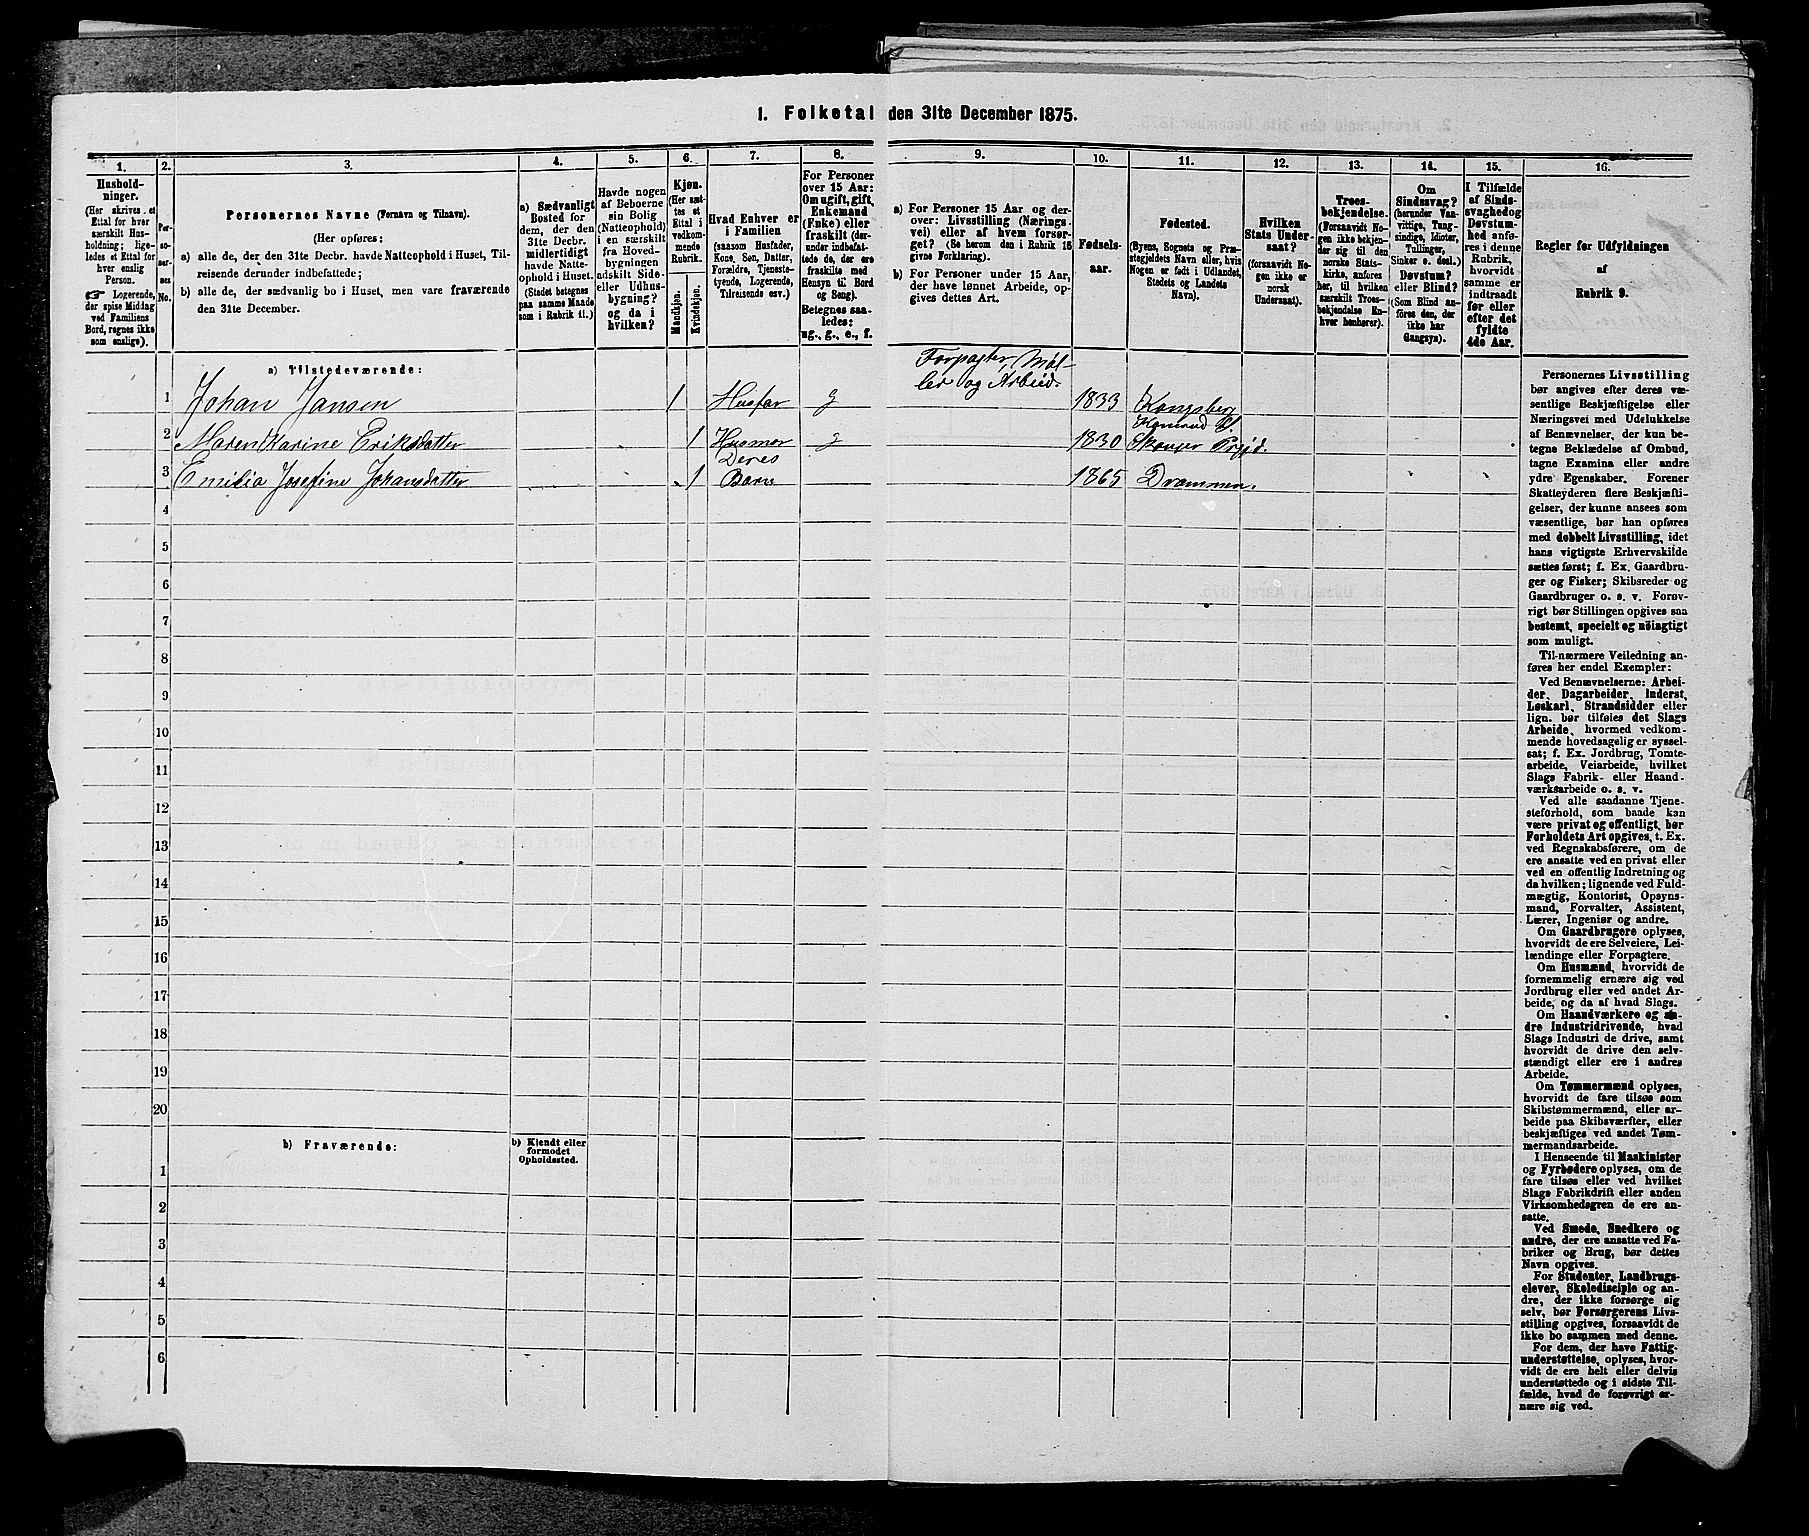 1. Folketal den 31te December 1875.
1. 2. 3. 4. 5. 6. 7. 8. 9. 10. 11. 12. 13. 14. 15. 16.
Hushold-
ninger.
(Her skrives et
Ettal for hver
særskilt Hus-
holdning; lige-
ledes et Ettal for
hver enslig
Person.
☞ Logerende,
der spise Middag
ved Familiens
Bord, regnes ikke
som enslige).
Per-
so-
ner-
nes
No.
Personernes Navne (Fornavn og Tilnavn).
(Her opføres:
a) alle de, der den 31te Decbr. havde Natteophold i Huset, Til-
reisende derunder indbefattede;
b) alle de, der sædvanlig bo i Huset, men vare fraværende
den 31te December.
a) Sædvanligt
Bosted for
dem, der den
31te Decbr.
midlertidigt
havde Natte-
ophold i Huset.
(Stedet betegnes
paa samme Maade
som i Rubrik 11.)
Havde nogen
af Beboerne
sin Bolig
(Natteophold)
i en særskilt
fra Hoved-
bygningen
adskilt Side-
eller Udhus-
bygning?
og da i
hvilken?
Kjøn.
(Her sæt-
tes et
Ettal i
vedkom-
mende
Rubrik.
Mandkjøn.
Kvindekjøn.
Hvad Enhver er
i Familien
(saasom Husfader,
Kone, Søn, Datter,
Forældre, Tjeneste-
tyende, Logerende,
Tilreisende osv.)
For Personer
over 15 Aar:
Om ugift, gift,
Enkemand
(Enke) eller
fraskilt (der-
under indbefat-
tede de, der ere
fraskilte med
Hensyn til Bord
og Seng).
Betegnes saa-
ledes:
ug., g., e., f.
a) For Personer 15 Aar og der-
over: Livsstilling (Nærings-
vei) eller af hvem forsør-
get? (Se herom den i Rubrik 16
givne Forklaring).
b) For Personer under 15 Aar,
der have lønnet Arbeide, op-
gives dettes Art.
Fødsels-
aar.
Fødested.
(Byens, Sognets og Præ-
stegjeldets Navn eller, hvis
Nogen er født i Udlandet,
Stedets og Landets
Navn).
Hvilken
Stats Under-
saat?
(forsaavidt No-
gen ikke er
norsk
Undersaat).
Troes-
bekjendelse.
(Forsaavidt No-
gen ikke bekjen-
der sig til den
norske Stats-
kirke, anføres
her, til hvilken
særskilt Troes-
bekjendelse En-
hver henhører).
Om
Sindssvag?
(herunder Van-
vittige, Tung-
sindige, Idioter,
Tullinger,
Sinker o. desl.)
Døvstum?
eller Blind?
(Som Blind an-
føres den, der
ikke har
Gangsyn).
I Tilfælde
af Sinds-
svaghed og
Døvstum-
hed anfø-
res i denne
Rubrik,
hvorvidt
samme er
indtraadt
før eller
efter det
fyldte
4de Aar.
Regler for Udfyldningen
af
Rubrik 9.
a) Tilstedeværende:
Forpagter, Møl-
ler og Arbeid.
1 Johan Jansen 1 Husfar g 1833 Kongsberg
2 Maren Karine Eriksdatter 1 Husmor g 1830 Skouger Prgjd.
Deres
3 Emilia Josefine Johansdatter 1 Barn 1865 Drammen.
4
5
6
7
8
9
10
11
12
13
14
15
16
17
18
19
20
b) Fraværende:
b) Kjendt eller
formodet
Opholdssted.
1
2
3
4
5
6
Personernes Livsstilling
bør angives efter deres væ-
sentlige Beskjæftigelse eller
Næringsvei med Udelukkelse
af Benævnelser, der kun be-
tegne Beklædelse af Ombud,
tagne Examina eller andre
ydre Egenskaber. Forener
Skatteyderen flere Beskjæfti-
gelser, der kunne ansees som
væsentlige, bør han opføres
med dobbelt Livsstilling, idet
hans vigtigste Erhvervskilde
sættes først; f. Ex. Gaardbru-
ger og Fisker; Skibsreder og
Gaardbruger o. s. v. Forøv-
rigt bør Stillingen opgives saa
bestemt, specielt og nøiagtigt
som muligt.
Til nærmere Veiledning an-
føres her endel Exempler:
Ved Benævnelserne: Arbei-
der, Dagarbeider, Inderst,
Løskarl, Strandsidder eller
lign. bør tilføies det Slags
Arbeide, hvormed vedkom-
mende hovedsagelig er syssel-
sat; f. Ex. Jordbrug, Tomte-
arbeide, Veiarbeide, hvilket
Slags Fabrik- eller Haand-
værksarbeide o. s. v.
Ved alle saadanne Tjene-
steforhold, som baade kan
være privat og offentligt, bør
Forholdets Art opgives, t. Ex.
ved Regnskabsførere, om de
ere ansatte ved en privat eller
ved en offentlig Indretning og
da hvilken; lignende ved Fuld-
mægtig, Kontorist, Opsyns-
mand, Forvalter, Assistent,
Lærer, Ingeniør og andre.
Om Gaardbrugere oplyses,
hvorvidt de ere Selveiere, Lei-
lændinge eller Forpagtere.
Om Husmænd, hvorvidt de
fornemmelig ernære sig ved
Jordbrug eller ved andet Ar-
beide, og da af hvad Slags.
Om Haandværkere og an-
dre Industridrivende, hvad
Slags Industri de drive, samt
hvorvidt de drive den selv-
stændigt eller ere i andres
Arbeide.
Om Tømmermænd oplyses,
hvorvidt de fare tilsøs som
Skibstømmermænd, eller ar-
beide paa Skibsværfter, eller
beskjæftiges ved andet Tøm-
mermandsarbeide.
I Henseende til Maskinister
og Fyrbødere oplyses, om de
fare tilsøs eller ved hvilket
Slags Fabrikdrift eller anden
Virksomhedsgren de ere an-
satte.
Ved Smede, Snedkere og
andre, der ere ansatte ved Fa-
briker og Brug, bør dettes
Navn opgives.
For Studenter, Landbrugs-
elever, Skoledisciple og an-
dre, der ikke forsørge sig
selv, bør Forsørgerens Livs-
stilling opgives, forsaavidt de
ikke bo sammen med denne.
For dem, der have Fattig-
understøttelse, oplyses, hvor-
vidt de ere helt eller delvis
understøttede og i sidste Til-
fælde, hvad de forøvrigt er-
nære sig ved.